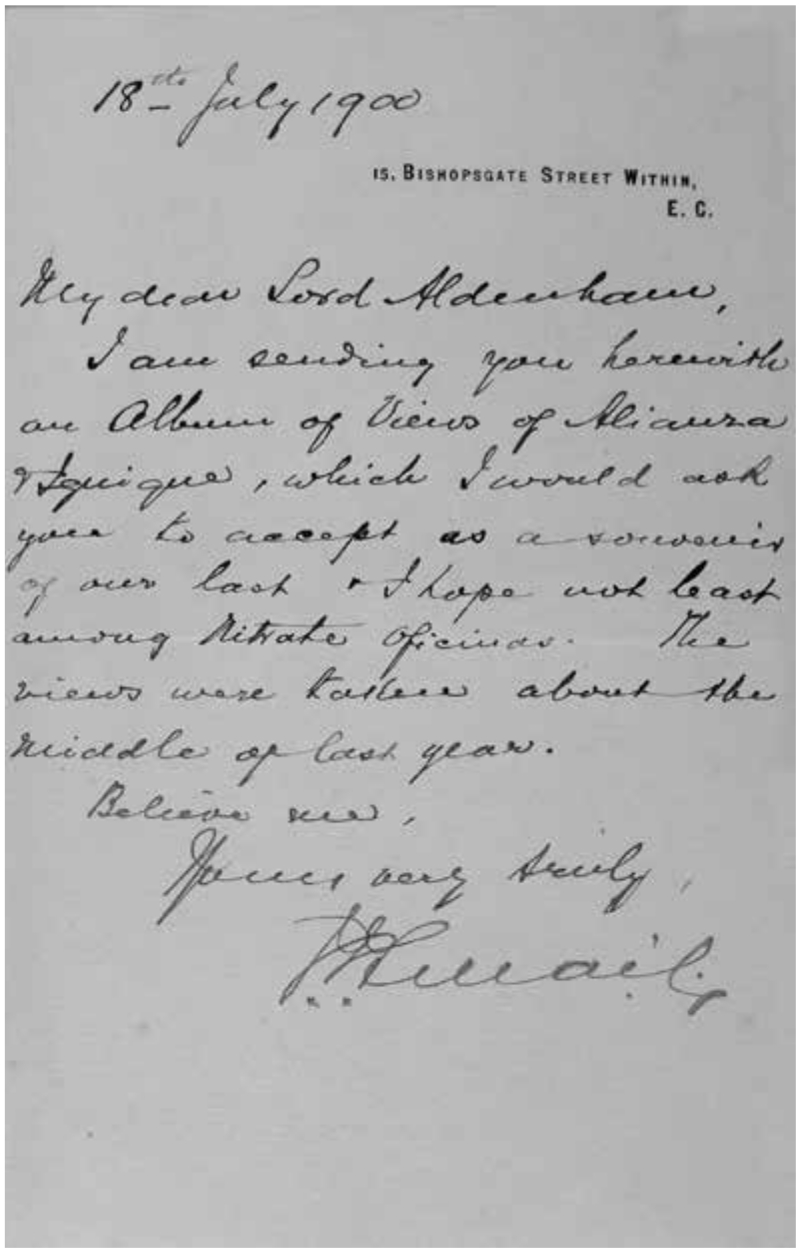 18th July 1900
15, BISHOPSGATE STREET WITHIN,
E. C.
My dear Lord Aldenham,
I am sending you herewith
an Album of Views of Alianza
& Iquique, which I would ask
you to accept as a souvenir
of our last & I hope not least
among Nitrate Oficinas. The
views were taken about the
middle of last year.
Believe me,
Yours very truly,
Smail